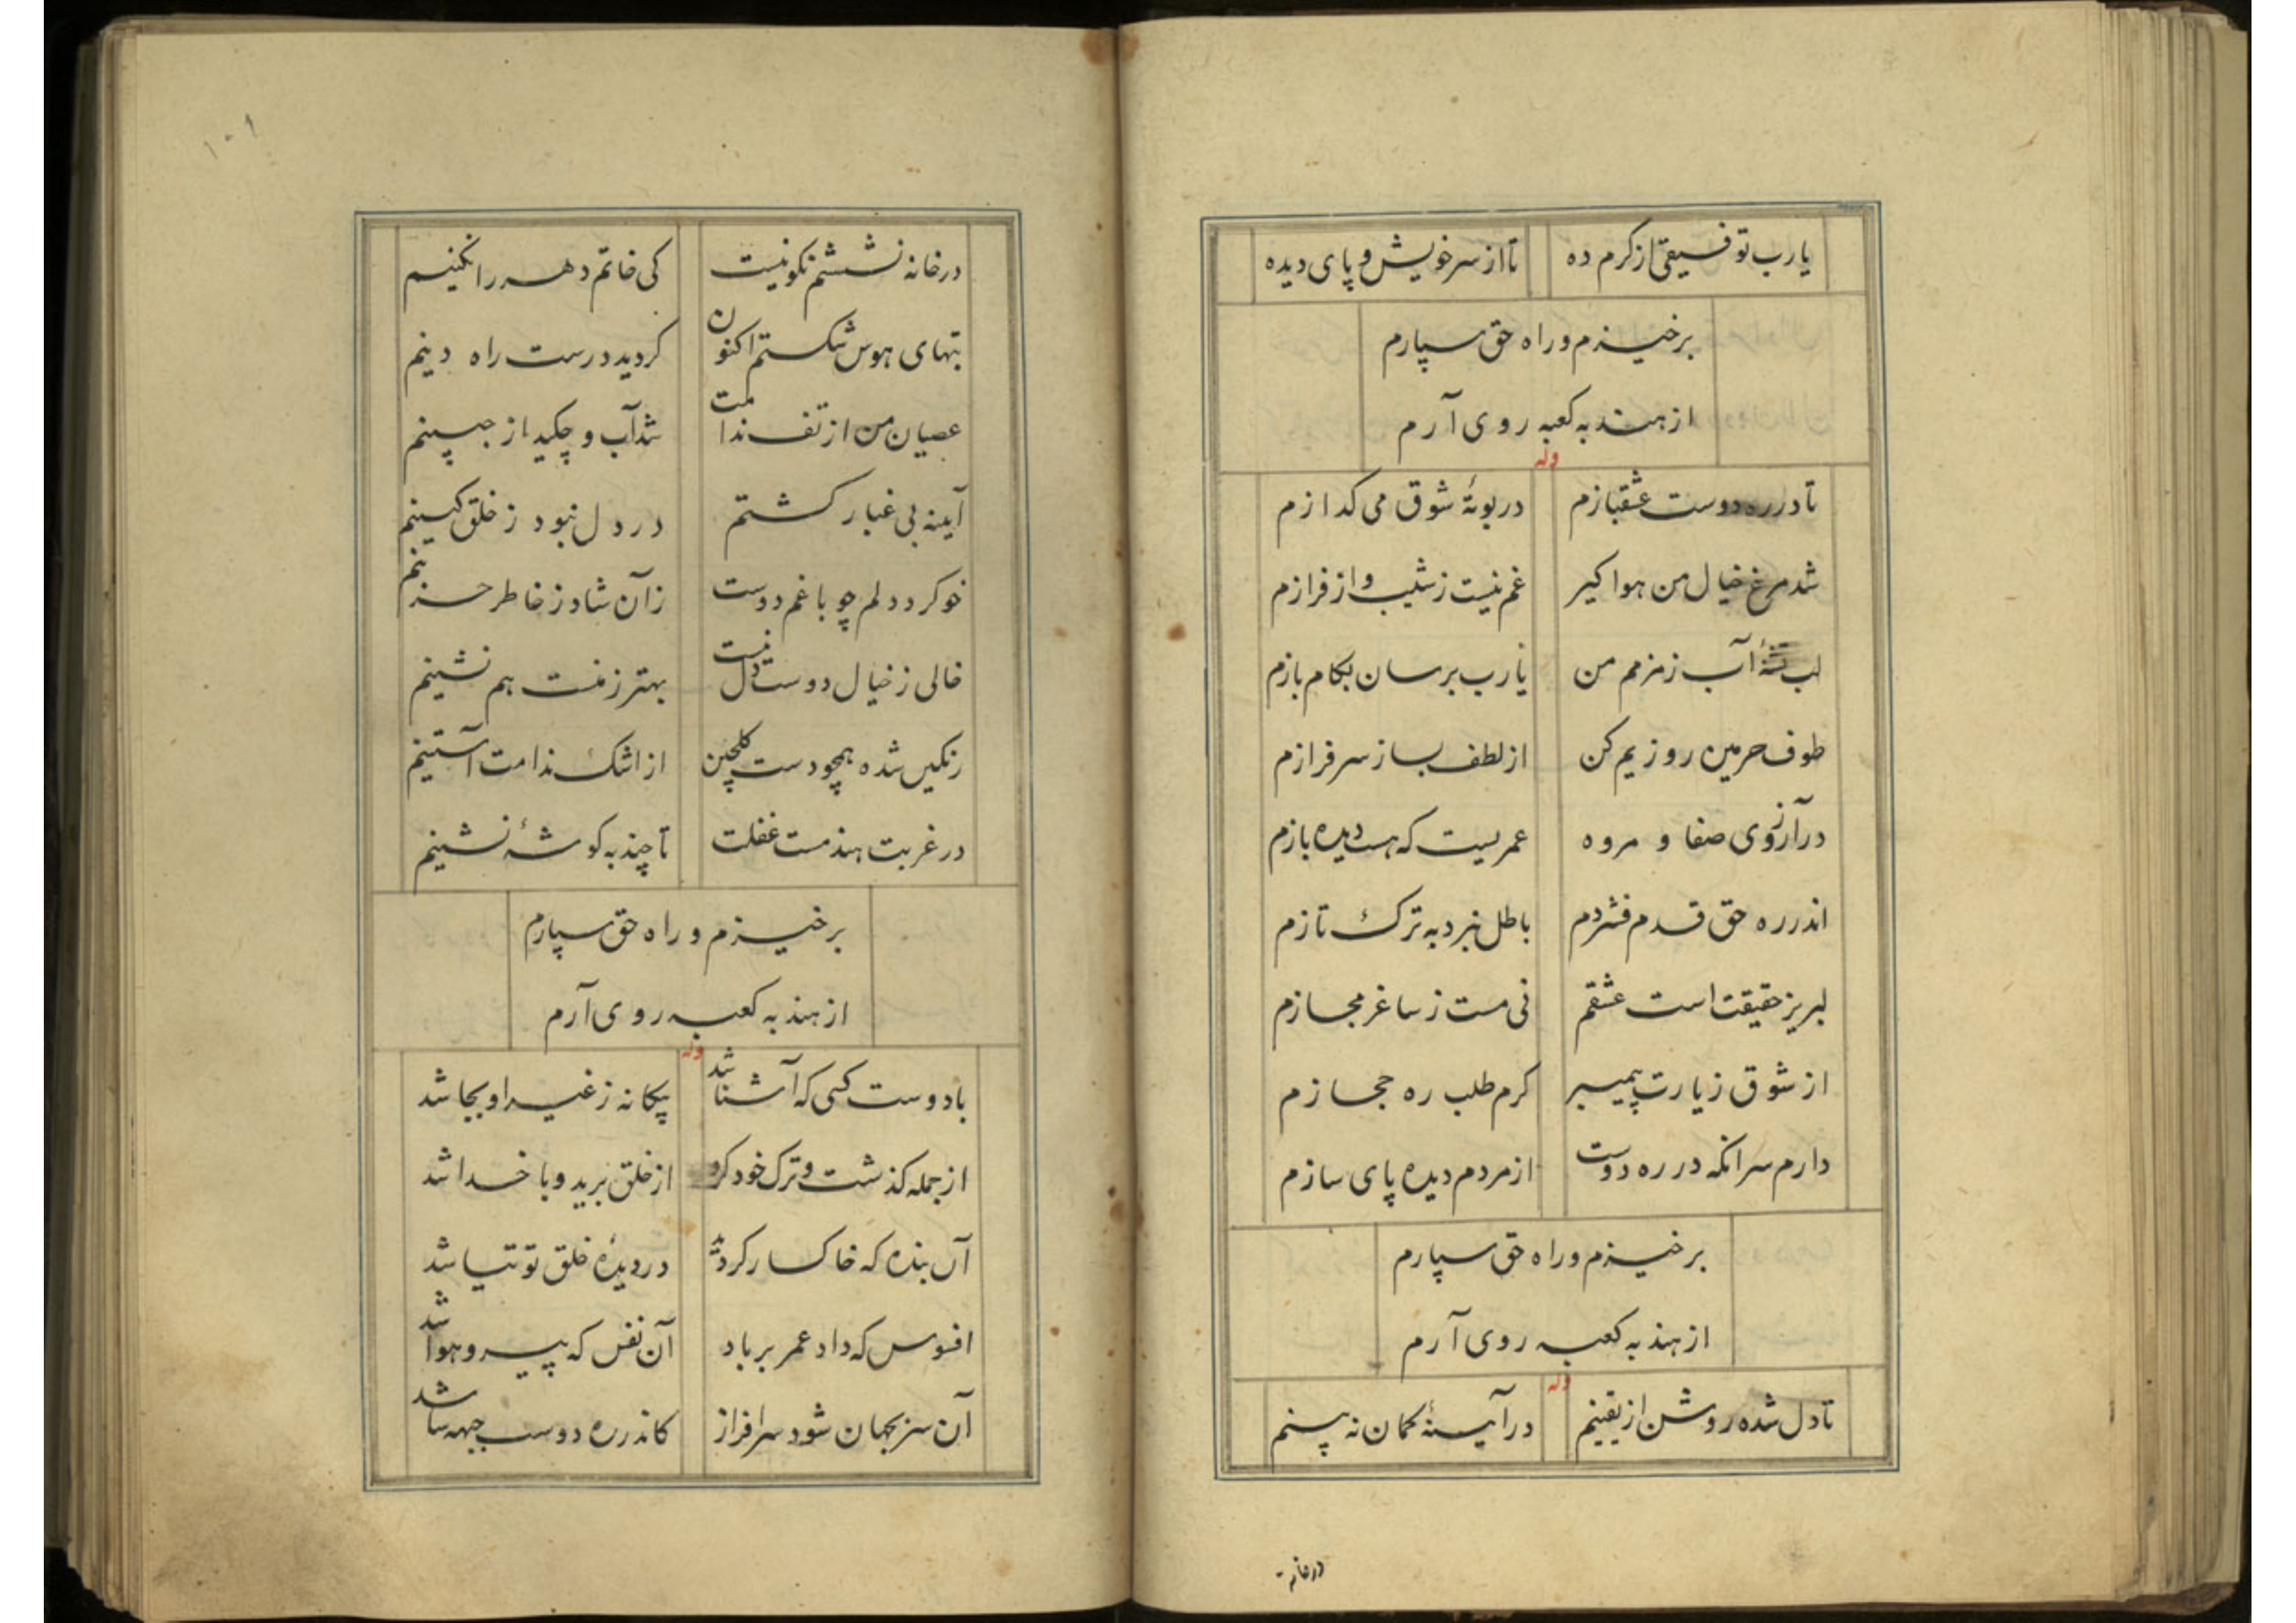 یارب توفیقی از کرم ده تا از سر خویش و پای دیده
برخیزم و راه حق سپارم
از هند به کعبه روی آرم
وله
تا در ره دوست عشقبازم در بوتهٔ شوق می کدازم
شد مرغ خیال من هوا کیر غم نیست ز شیب و از فرازم
لب تشنهٔ آب زمزمم من یارب برسان بکام بازم
طوف حرمین روزیم کن از لطف بساز سرفرازم
در آرزوی صفا و مروه عمریست که هست دیده بازم
اندر ره حق قدم فشردم باطل نبرد به ترک تازم
لبریز حقیقت است عشقم نی مست ز ساغر مجازم
از شوق زیارت پیمبر کرم طلب ره حجازم
دارم سر انکه در ره دوست از مردم دیده پای سازم
برخیزم و راه حق سپارم
از هند به کعبه روی آرم
وله
تا دل شده روشن از یقینم در آیینهٔ کمان نه بینم
درخانه
۱۰۱
در خانه نشستنم نکو نیست کی خاتم دهر را نکینم
بتهای هوس شکستم اکنون کردید درست راه دینم
عصیان من از تف ندامت شد آب و چکید از جبینم
آیینه بی غبار کشتم در دل نبود ز خلق کینم
خو کرد دلم چو با غم دوست زآن شاد ز خاطر حزینم
خالی ز خیال دوست دل نیست بهتر ز منست هم نشینم
رنکین شده همچو دست کلچین از اشک ندامت آستینم
در غربت هند مست غفلت تا چند به کوشهٔ نشینم
برخیزم و راه حق سپارم
از هند به کعبه روی آرم
وله
با دوست کسی که آشنا شد بیکانه ز غیر او بجا شد
از جمله کذشت و ترک خود کرد از خلق برید و با خدا شد
آن بنده که خاکسار کردد در دیدهٔ خلق توتیا شد
افسوس که داد عمر بر باد آن نفس که پیرو هوا شد
آن سر بجهان شود سرافراز کاندر ره دوست جبهه سا شد